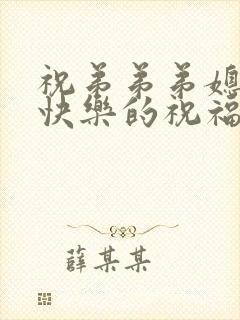 祝弟弟弟媳
快樂的祝福
薛某某